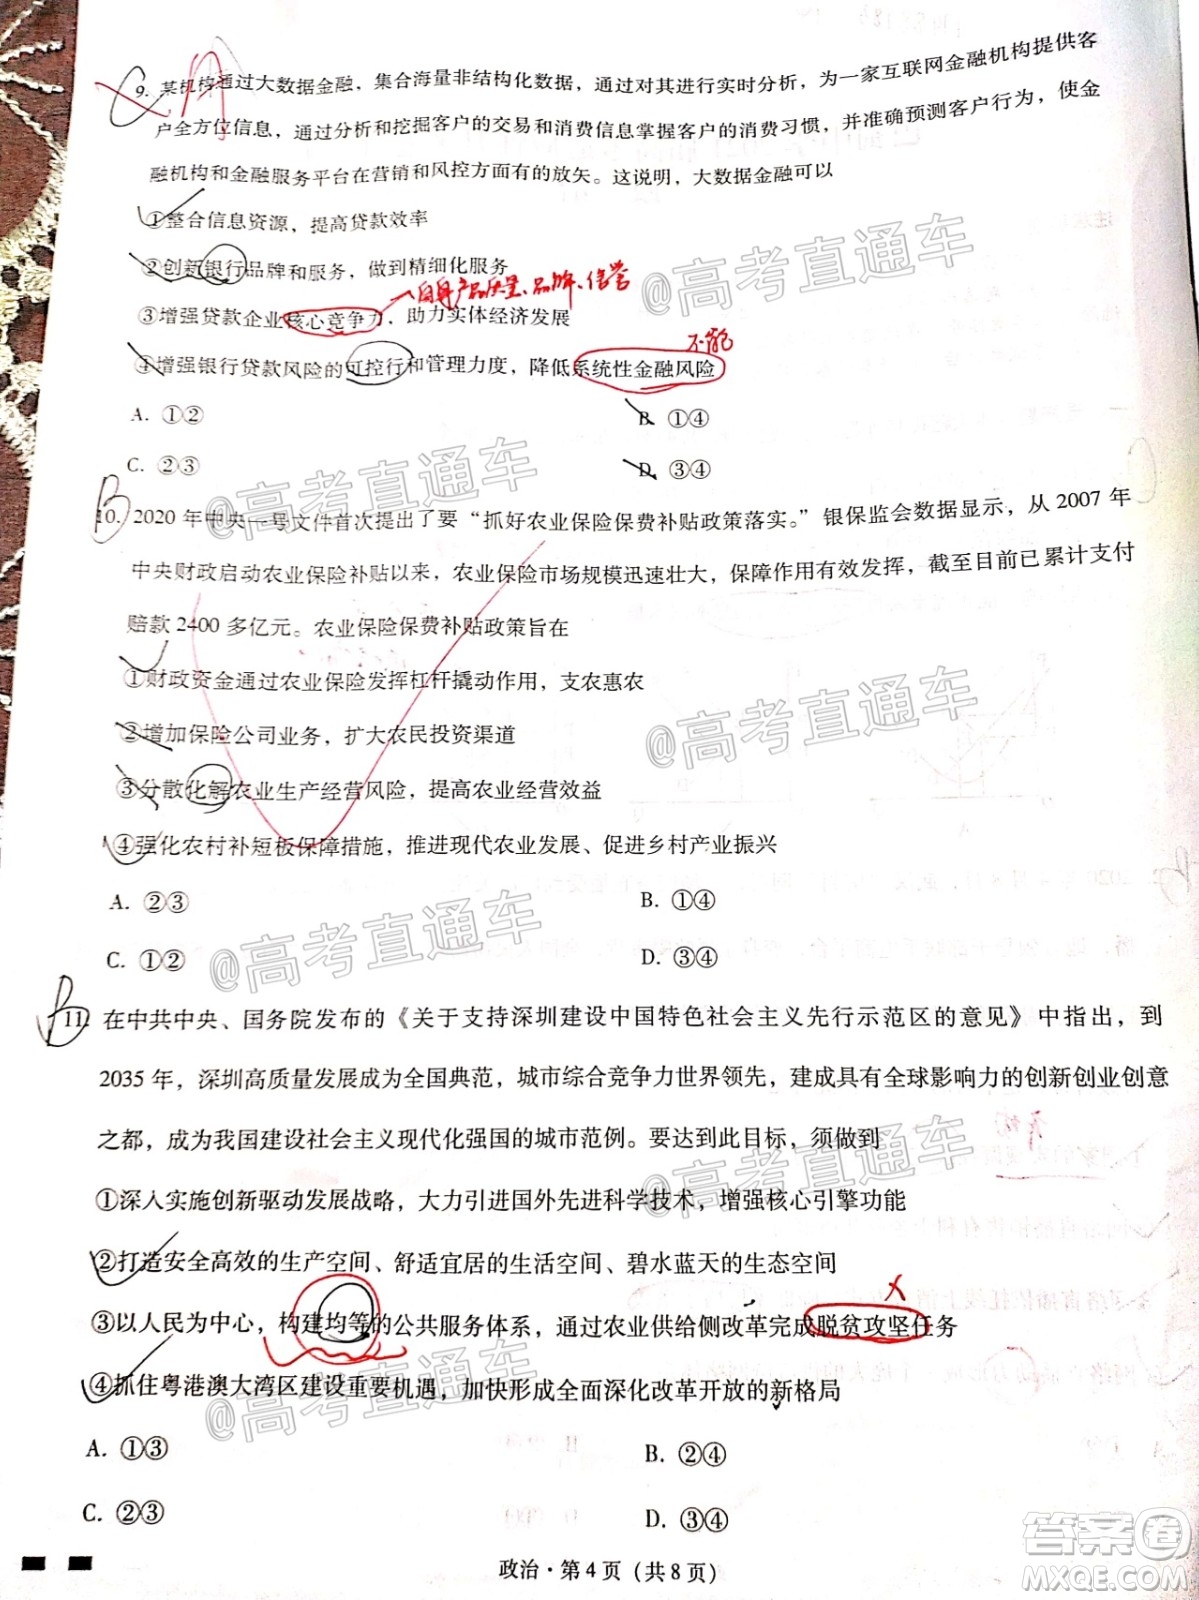 9. 某机构通过大数据金融，集合海量非结构化数据，通过对其进行实时分析，为一家互联网金融机构提供客
户全方位信息，通过分析和挖掘客户的交易和消费信息掌握客户的消费习惯，并准确预测客户行为，使金
融机构和金融服务平台在营销和风控方面有的放矢。这说明，大数据金融可以
①整合信息资源，提高贷款效率
②创新银行品牌和服务，做到精细化服务
自身产品质量、品牌、信誉
③增强贷款企业核心竞争力，助力实体经济发展
不能
④增强银行贷款风险的可控行和管理力度，降低系统性金融风险
A. ①②
B. ①④
C. ②③
D. ③④
B
10. 2020 年中央一号文件首次提出了要“抓好农业保险保费补贴政策落实。”银保监会数据显示，从 2007 年
中央财政启动农业保险补贴以来，农业保险市场规模迅速壮大，保障作用有效发挥，截至目前已累计支付
赔款 2400 多亿元。农业保险保费补贴政策旨在
①财政资金通过农业保险发挥杠杆撬动作用，支农惠农
②增加保险公司业务，扩大农民投资渠道
③分散化解农业生产经营风险，提高农业经营效益
④强化农村补短板保障措施，推进现代农业发展、促进乡村产业振兴
A. ②③
B. ①④
C. ①②
D. ③④
B
11. 在中共中央、国务院发布的《关于支持深圳建设中国特色社会主义先行示范区的意见》中指出，到
2035 年，深圳高质量发展成为全国典范，城市综合竞争力世界领先，建成具有全球影响力的创新创业创意
之都，成为我国建设社会主义现代化强国的城市范例。要达到此目标，须做到
①深入实施创新驱动发展战略，大力引进国外先进科学技术，增强核心引擎功能
②打造安全高效的生产空间、舒适宜居的生活空间、碧水蓝天的生态空间
③以人民为中心，构建均等的公共服务体系，通过农业供给侧改革完成脱贫攻坚任务
④抓住粤港澳大湾区建设重要机遇，加快形成全面深化改革开放的新格局
A. ①③
B. ②④
C. ②③
D. ③④
政治·第 4 页（共 8 页）
@高考直通车
@高考直通车
@高考直通车
@高考直通车
@高考直通车
@高考直通车
@高考直通车
答案卷
MXQE.COM